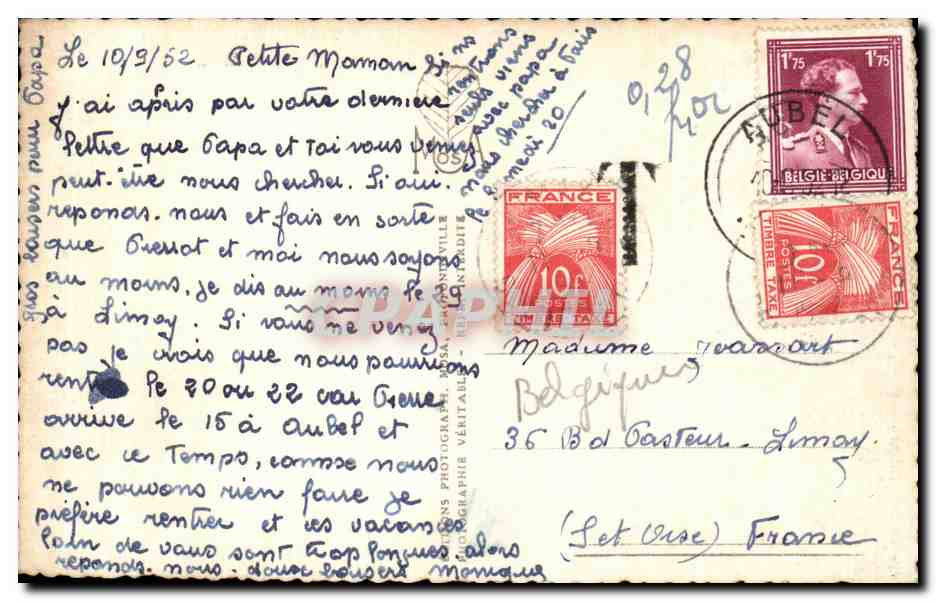 Le 10/9/52 Petite Maman
J'ai après par votre dernière
lettre que Papa et Toi vous venez
peut-être nous chercher. Si oui
reponds-nous et fais en sorte
que Pierrot et moi nous soyons
au moins, je dis au moins le 21
à Limay. Si vous ne venez
pas je crois que nous pourrions
rentrer le 20 ou 22 car Pierre
arrive le 15 à Aubel et
avec ce Temps, comme nous
ne pouvons rien faire je
préfère rentrer et ces vacances
loin de vous sont trop longues. alors
reponds-nous. doux baisers Monique
gros baisers pour Papa
Si nous
rentrons
seuls viens
avec papa
nous chercher à Paris
le samedi 20
0,28
MOSA
ÉDITIONS PHOTOGRAPH. MOSA, PROFONDEVILLE
PHOTOGRAPHIE VÉRITABLE - REPR. INTERDITE
T
FRANCE
10f
POSTES
TIMBRE TAXE
1F75 1F75
BELGIE-BELGIQUE
AUBEL
FRANCE
10f
POSTES
TIMBRE TAXE
Madame
Belgique
36 Bd Pasteur - Limay.
(S et Oise) France